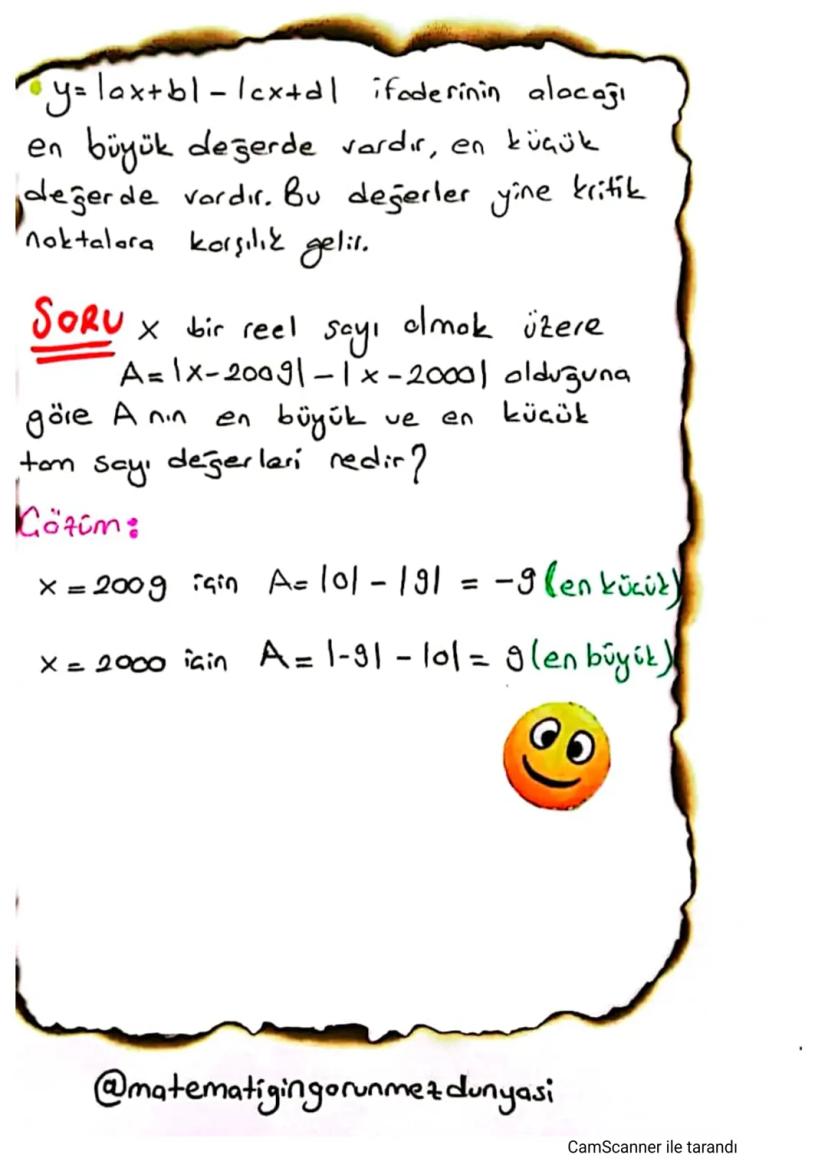 • y= |ax+b| - |cx+d| ifadesinin alacağı
en büyük değerde vardır, en küçük
değerde vardır. Bu değerler yine kritik
noktalara karşılık gelir.
SORU x bir reel sayı olmak üzere
A= |x-2009| - |x-2000| olduğuna
göre A nın en büyük ve en küçük
tam sayı değerleri nedir?
Çözüm:
x = 2009 için A= |0| - |9| = -9 (en küçük)
x = 2000 için A= |-9| - |0| = 9 (en büyük)
@matematigingorunmezdunyasi
CamScanner ile tarandı